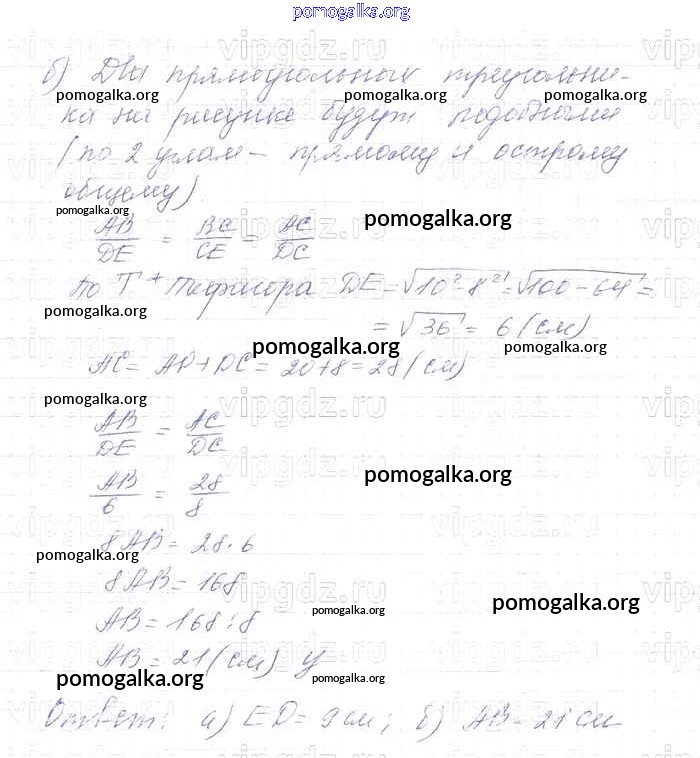 pomogalka.org
vipgdz.ru vipgdz.ru vipgdz.ru
б) Два прямоугольных треугольни-
pomogalka.org pomogalka.org pomogalka.org
ка на рисунке будут подобными
(по 2 углам – прямому и острому
общему).
pomogalka.org
AB/DE = BC/CE = AC/DC
pomogalka.org
По Т Пифагора DE = √10² - 8² = √100 - 64 =
pomogalka.org
= √36 = 6 (см)
pomogalka.org pomogalka.org
AC = AD + DC = 20 + 8 = 28 (см)
pomogalka.org
AB/DE = AC/DC
pomogalka.org
AB/6 = 28/8
8AB = 28 · 6
pomogalka.org
8AB = 168
pomogalka.org
AB = 168 : 8
pomogalka.org
AB = 21 (см)
pomogalka.org pomogalka.org
Ответ: а) ED = 9 см; б) AB = 21 см